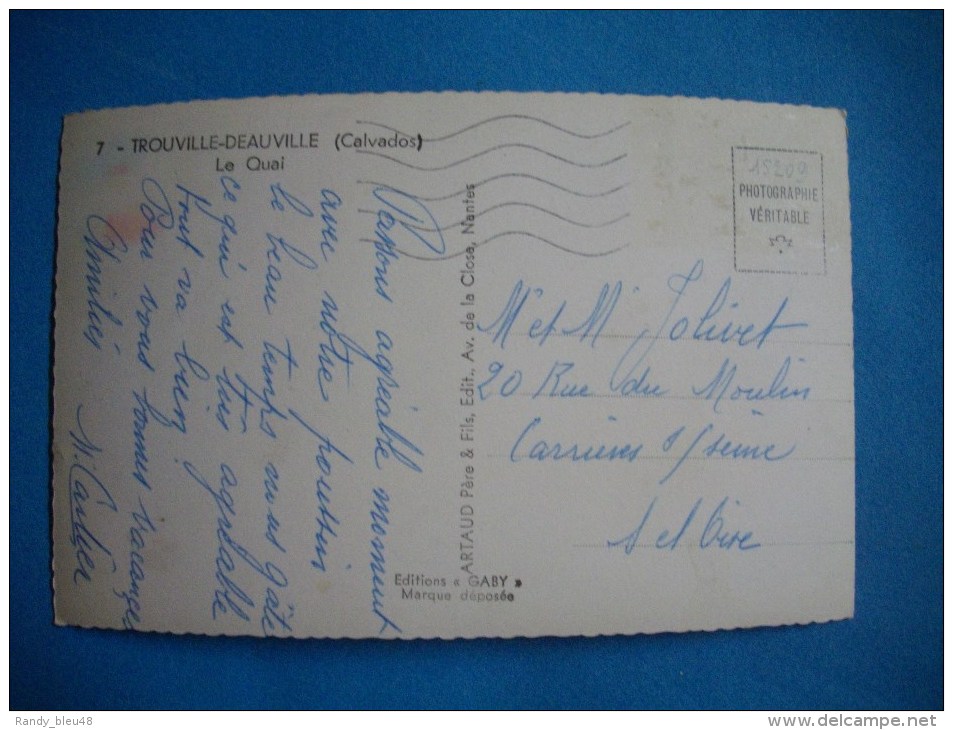 7 - TROUVILLE-DEAUVILLE (Calvados)
Le Quai
Passons agréable moment
avec nôtre poussin
le beau temps nous gâte
ce qui est très agréable
tout va bien.
Pour vous bonnes vacances
Amitiés
ARTAUD Père & Fils, Edit., Av. de la Close, Nantes
Editions « GABY »
Marque déposée
15200
PHOTOGRAPHIE
VÉRITABLE
Mr et Me Jolivet
20 Rue du Moulin
Carrières s/seine
S et Oise
Randy_bleu48
delcampe.net